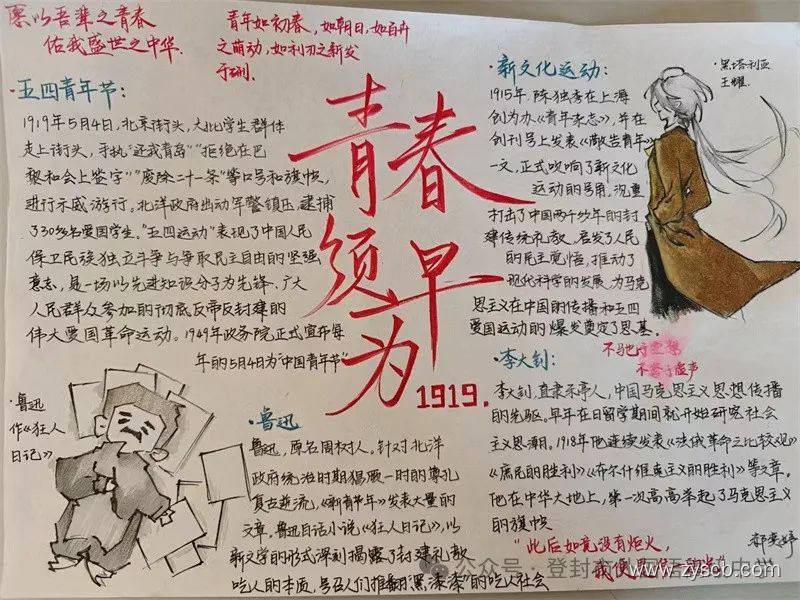 愿以吾辈之青春
佑我盛世之中华.
青年如初春,如朝日,如百卉
之萌动,如利刃之新发
于硎.
青春
须早
为
1919.
·五四青年节:
1919年5月4日,北京街头,大批学生群体
走上街头,手执"还我青岛""拒绝在巴
黎和会上签字""废除二十一条"等口号和旗帜,
进行示威游行。北洋政府出动军警镇压,逮捕
了30多名爱国学生。"五四运动"表现了中国人民
保卫民族独立斗争与争取民主自由的坚强
意志,是一场以先进知识分子为先锋、广大
人民群众参加的彻底反帝反封建的
伟大爱国革命运动。1949年政务院正式宣布每
年的5月4日为"中国青年节"
·新文化运动:
1915年,陈独秀在上海
创为办《青年杂志》,并在
创刊号上发表《敬告青年》
一文,正式吹响了新文化
运动的号角,沉重
打击了中国两千多年的封
建传统礼教,启发了人民
的民主觉悟,推动了
现代科学的发展,为马克
思主义在中国的传播和五四
爱国运动的爆发奠定了思基.
·黑塔利亚
王耀.
不驰于空想
不骛于虚声
·李大钊:
李大钊,直隶乐亭人,中国马克思主义思想传播
的先驱。早年在日留学期间就开始研究社会
主义思潮。1918年他连续发表《法俄革命之比较观》
《庶民的胜利》《布尔什维克主义的胜利》等文章。
他在中华大地上,第一次高高举起了马克思主义
的旗帜
"此后如竟没有炬火,
我便是唯一的光"
·鲁迅
作《狂人
日记》
·鲁迅
鲁迅,原名周树人。针对北洋
政府统治时期猖厥一时的尊孔
复古逆流,《新青年》发表大量的
文章,鲁迅白话小说《狂人日记》,以
新文学的形式深刻揭露了封建礼教
吃人的本质,号召人们推翻"黑漆漆"的吃人社会
公众号·登封市
www.zyscb.com